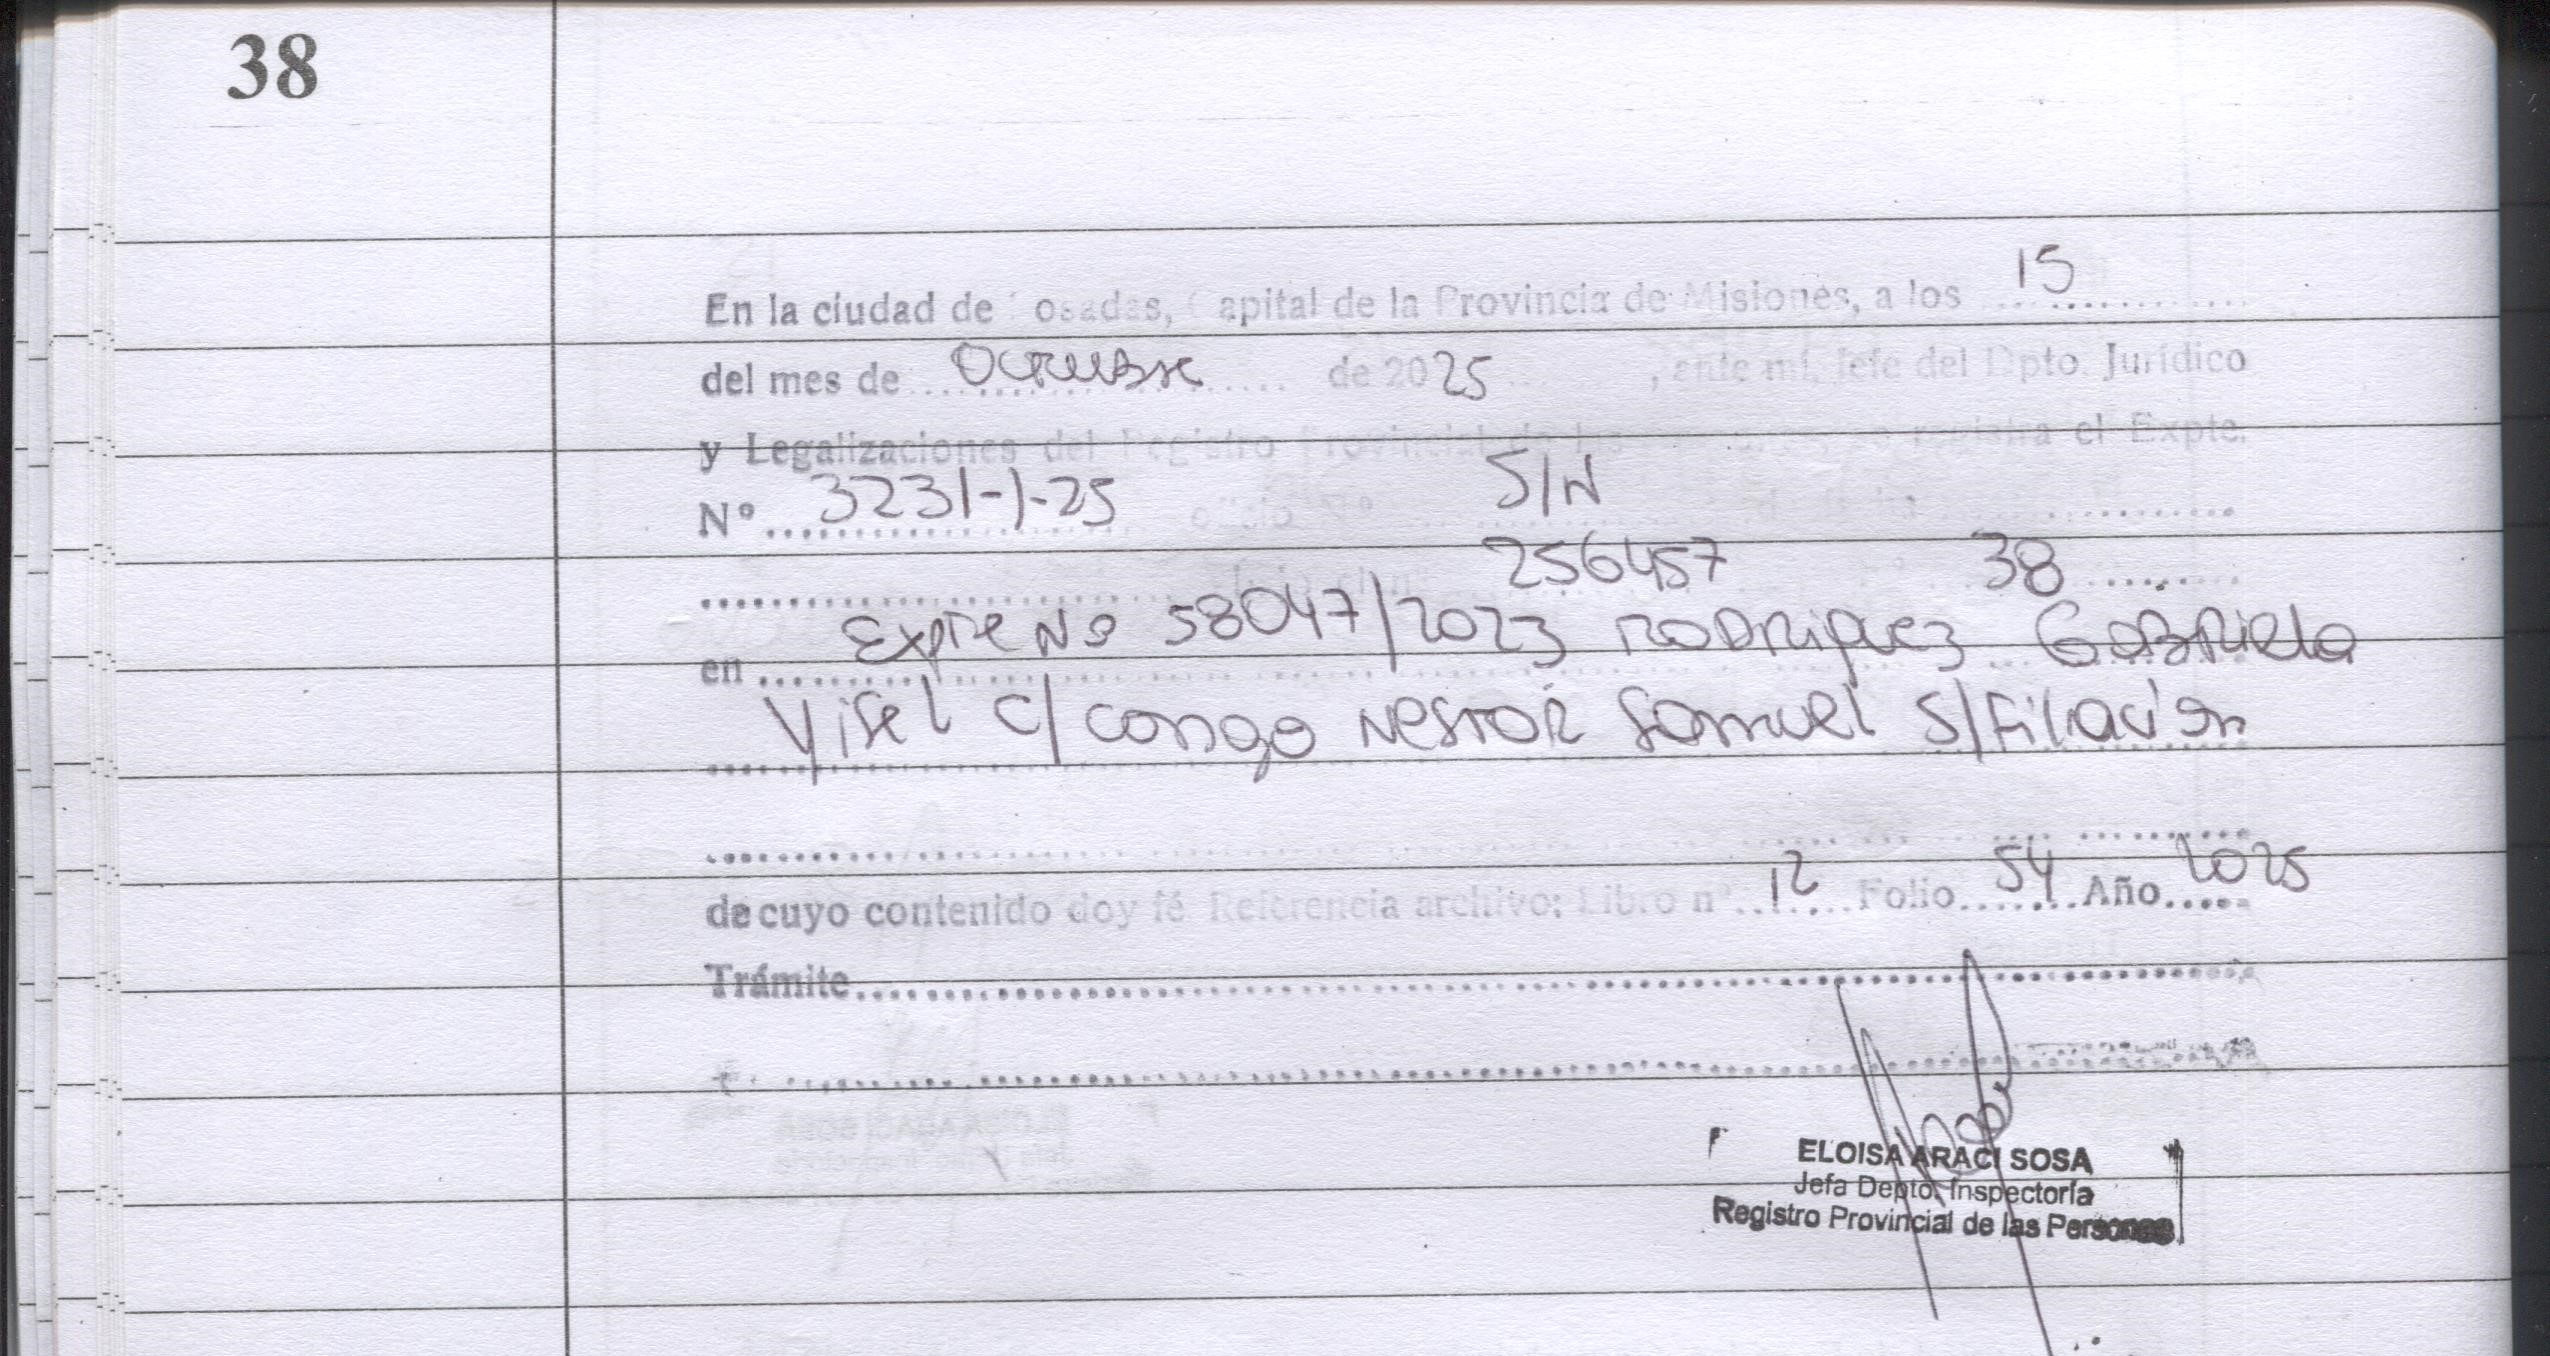 38
15
En la ciudad de Posadas, Capital de la Provincia de Misiones, a los ..............
del mes de Octubre de 2025, ante mí, Jefe del Dpto. Jurídico
y Legalizaciones del Registro Provincial de las se registra el Expte.
Nº 3231-1-25 oficio Nº S/N
256457 38
en Expte Nº 58047/2023 Rodriguez Gabriela
Yisel c/ Congo Nestor Samuel s/Filiación
de cuyo contenido doy fé Referencia archivo: Libro nº 12 Folio 54 Año 2025
Trámite
ELOISA ARACI SOSA
Jefa Depto. Inspectoría
Registro Provincial de las Personas